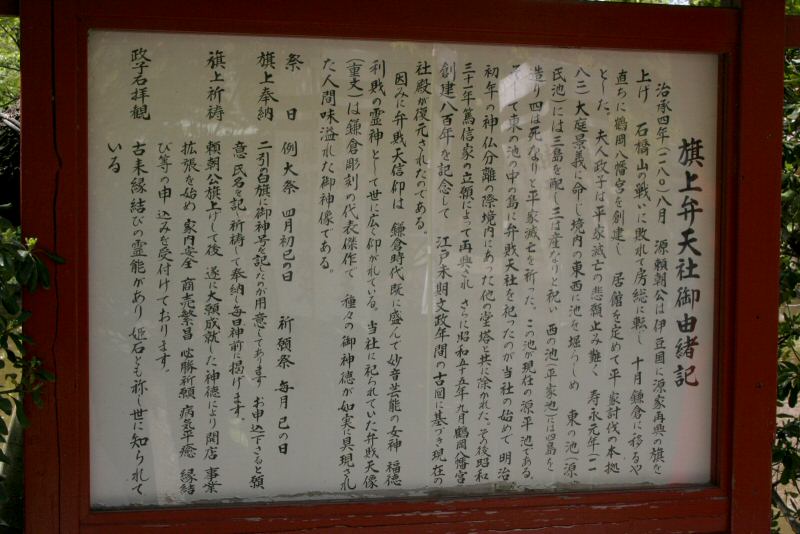 旗上弁天社御由緒記
治承四年(一一八〇)八月 源頼朝公は伊豆国に源家再興の旗を
上げ 石橋山の戦いに敗れて房総に転じ 十月鎌倉に移るや
直ちに鶴岡八幡宮を創建し 居館を定めて平家討伐の本拠
とした。夫人政子は平家滅亡の悲願止み難く 寿永元年(一一
八二)大庭景義に命じ境内の東西に池を掘らしめ 東の池(源
氏池)には三島を配し三は産なりと祝い 西の池(平家池)には四島を
造り四は死なりと平家滅亡を祈った。この池が現在の源平池である。
して東の池の中の島に弁財天社を祀ったのが当社の始めで 明治
初年の神仏分離の際境内にあった他の堂塔と共に除かれた。その後昭和
三十一年篤信家の立願によって再興され さらに昭和五十五年九月鶴岡八幡宮
創建八百年を記念して 江戸末期文政年間の古図に基づき現在の
社殿が復元されたのである。
因みに弁財天信仰は 鎌倉時代既に盛んで妙音芸能の女神 福徳
利財の霊神として世に広く仰がれている。当社に祀られていた弁財天像
(重文)は鎌倉彫刻の代表傑作で 種々の御神徳が如実に具現され
た人間味溢れた御神像である。
祭 日 例大祭 四月初巳の日 祈願祭 毎月巳の日
旗上奉納 二引の白旗に御神号を記したのが用意してあります お申込下さると願
意 氏名を記し祈祷して奉納し毎日神前に掲げます。
旗上祈祷 頼朝公旗上げして後 遂に大願成就した神徳により開店 事業
拡張を始め 家内安全 商売繁昌 必勝祈願 病気平癒 縁結
び等の申込みを受付けております。
政子石拝観 古来縁結びの霊能があり 姫石とも称し世に知られて
いる